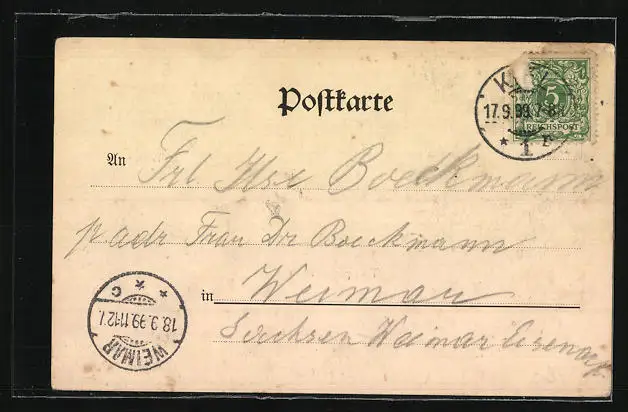 Postkarte
5
REICHSPOST
17.9.99.7-8
* 1
An Frl Ilse Boeckmann
p adr Frau Dr Boeckmann
in Weimar
Sachsen Weimar Eisenach
WEIMAR
18.9.99.11-12
* * C